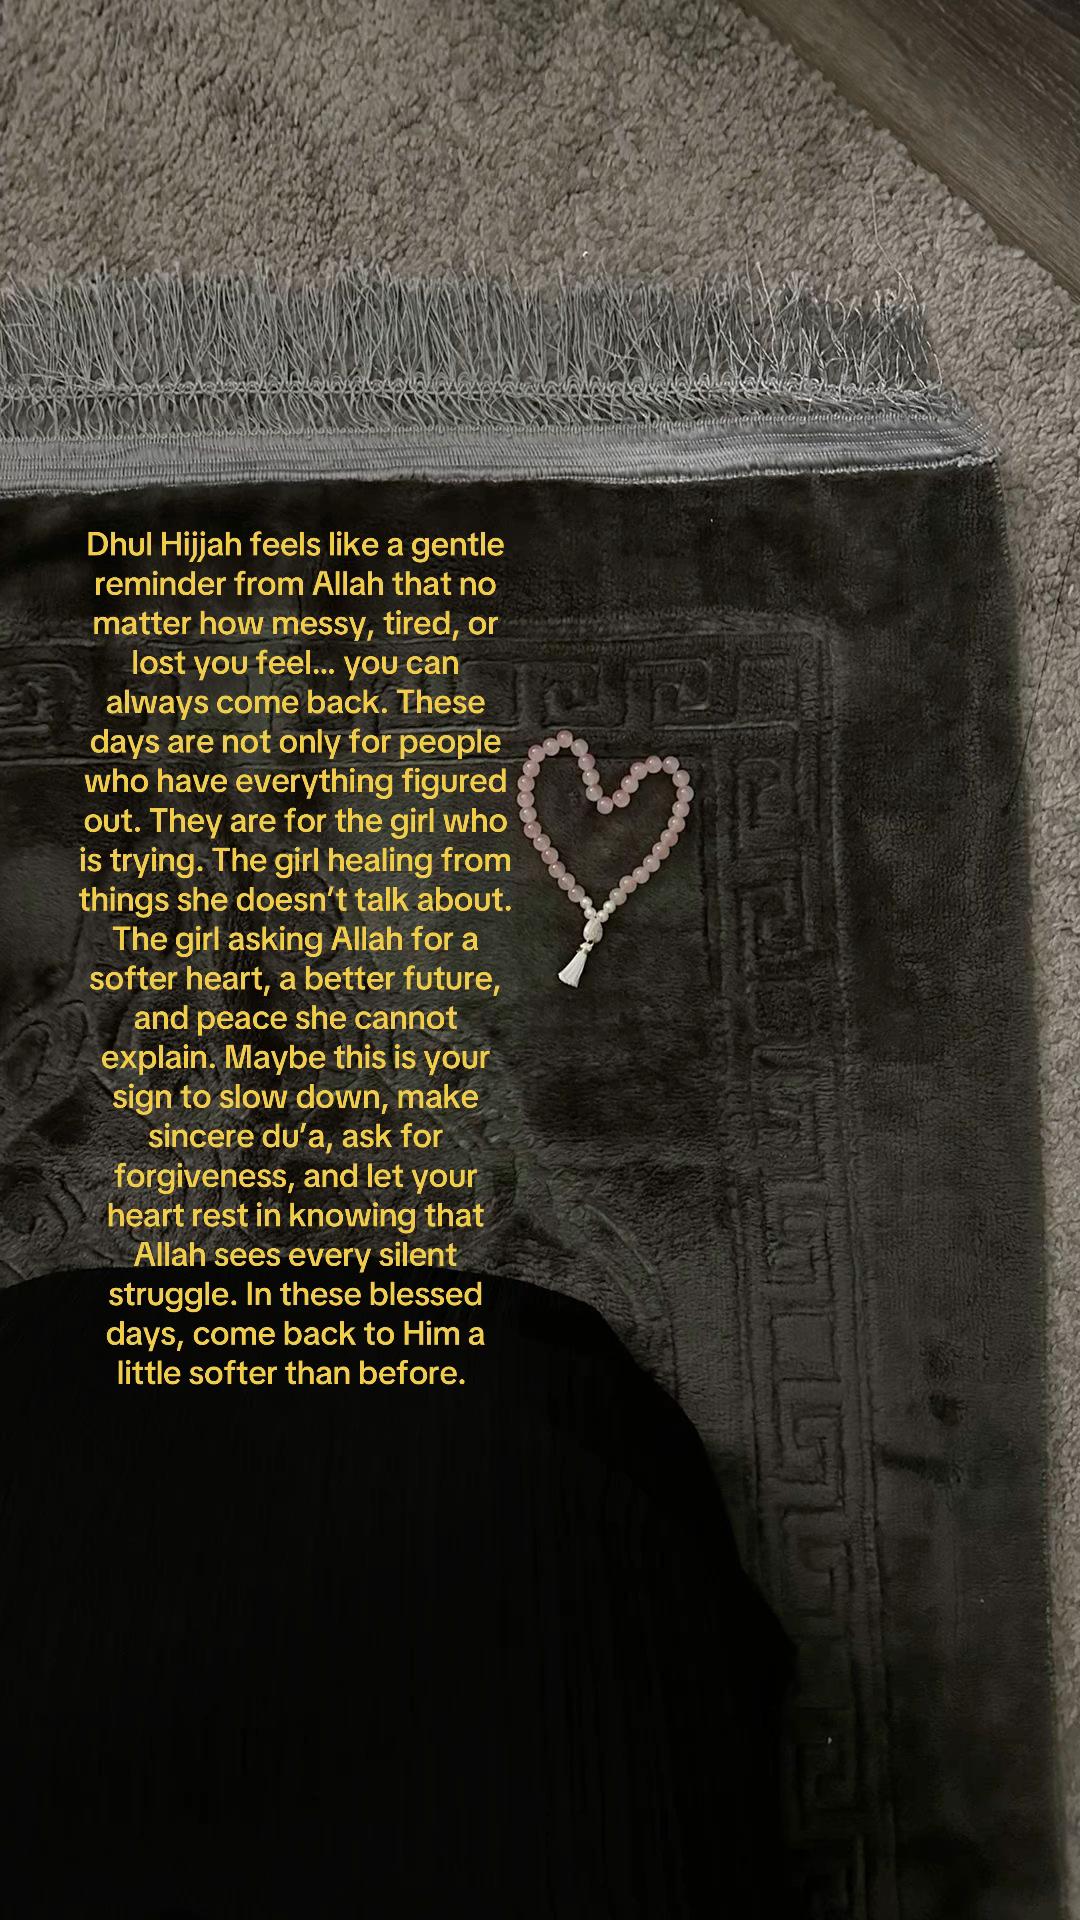 Dhul Hijjah feels like a gentle
reminder from Allah that no
matter how messy, tired, or
lost you feel... you can
always come back. These
days are not only for people
who have everything figured
out. They are for the girl who
is trying. The girl healing from
things she doesn’t talk about.
The girl asking Allah for a
softer heart, a better future,
and peace she cannot
explain. Maybe this is your
sign to slow down, make
sincere du’a, ask for
forgiveness, and let your
heart rest in knowing that
Allah sees every silent
struggle. In these blessed
days, come back to Him a
little softer than before.